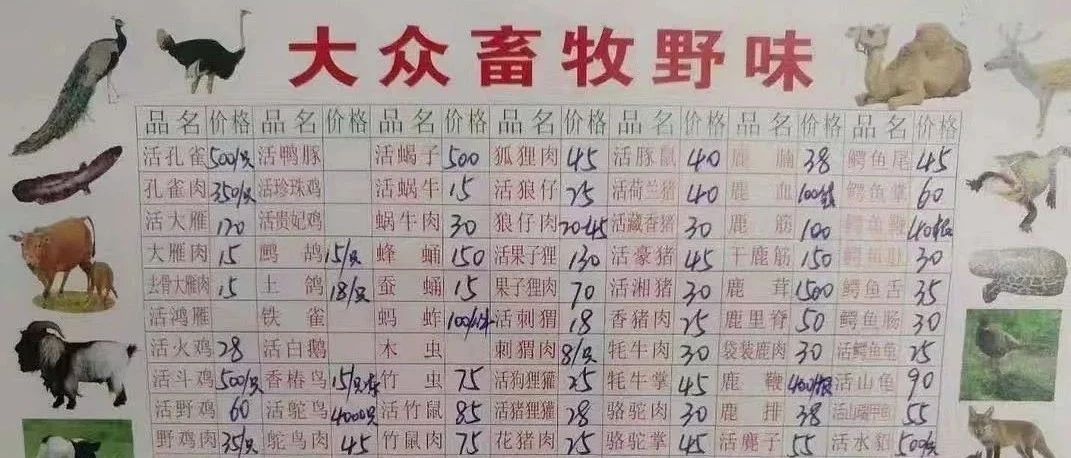 大众畜牧野味
品名 价格 品名 价格 品名 价格 品名 价格 品名 价格 品名 价格 品名 价格
活孔雀 500/只 活鸭豚 活蝎子 500 狐狸肉 45 活豚鼠 40 鹿腩 38 鳄鱼尾 45
孔雀肉 350/只 活珍珠鸡 活蜗牛 15 活狼仔 25 活荷兰猪 40 鹿血 鳄鱼掌 60
活大雁 120 活贵妃鸡 蜗牛肉 30 狼仔肉 20-45 活藏香猪 30 鹿筋 100 鳄鱼鞭
大雁肉 15 鹧鸪 15/只 蜂蛹 150 活果子狸 130 活豪猪 45 干鹿筋 150 鳄鱼肚 30
去骨大雁肉 15 土鸽 18/只 蚕蛹 15 果子狸肉 70 活湘猪 30 鹿茸 1500 鳄鱼舌 35
活鸿雁 铁雀 蚂蚱 活刺猬 18 香猪肉 25 鹿里脊 50 鳄鱼肠 30
活火鸡 28 活白鹅 木虫 刺猬肉 8/只 牦牛肉 30 袋装鹿肉 30 活鳄鱼龟 25
活斗鸡 500/只 香椿鸟 竹虫 75 活狗狸獾 25 牦牛掌 45 鹿鞭 400/根 活山龟 90
活野鸡 60 活鸵鸟 4000只 活竹鼠 85 活猪狸獾 28 骆驼肉 30 鹿排 38 活山瑞甲鱼 55
野鸡肉 35/只 鸵鸟肉 45 竹鼠肉 75 花猪肉 25 骆驼掌 45 活麂子 55 活水貂 500/只